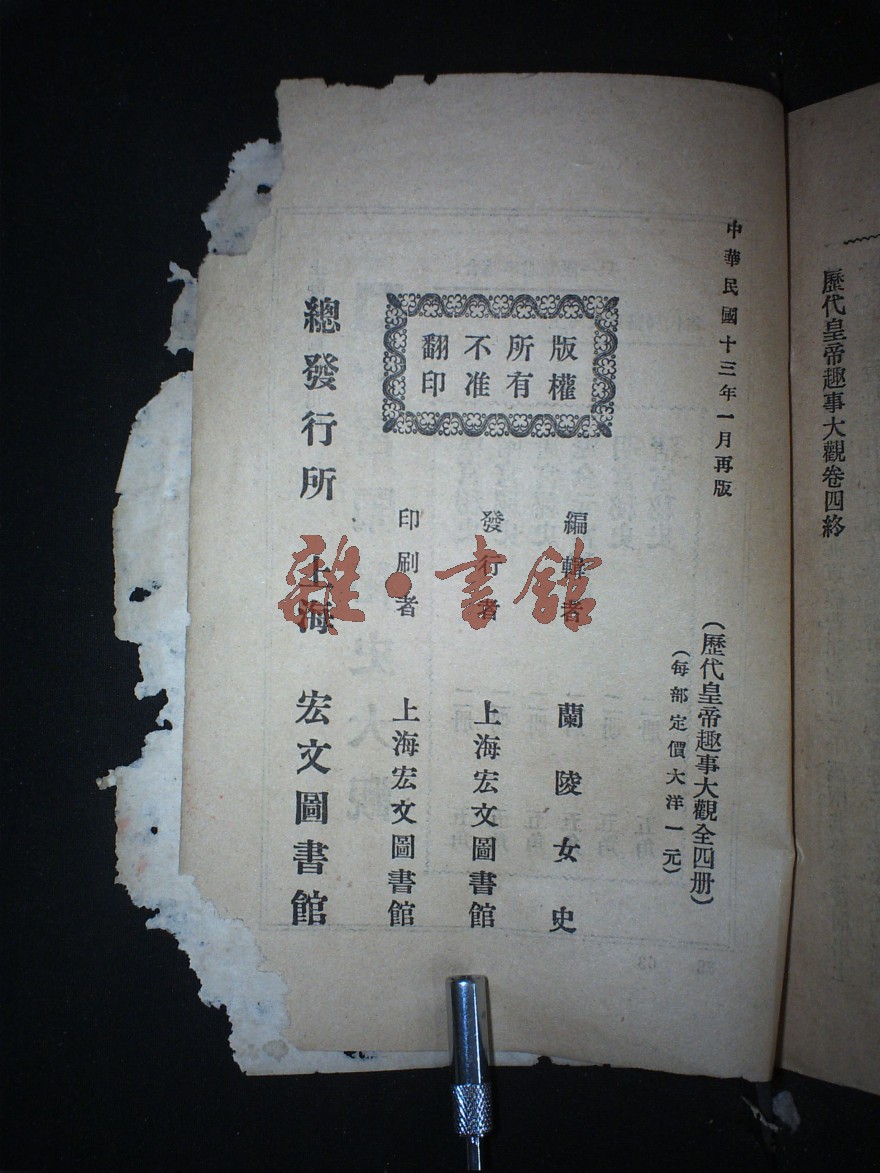 歷代皇帝趣事大觀卷四終
中華民國十三年一月再版
(歷代皇帝趣事大觀全四册)
(每部定價大洋一元)
版權
所有
不准
翻印
編輯者 蘭陵女史
發行者 上海宏文圖書館
印刷者 上海宏文圖書館
總發行所 上海 宏文圖書館
雜·書館